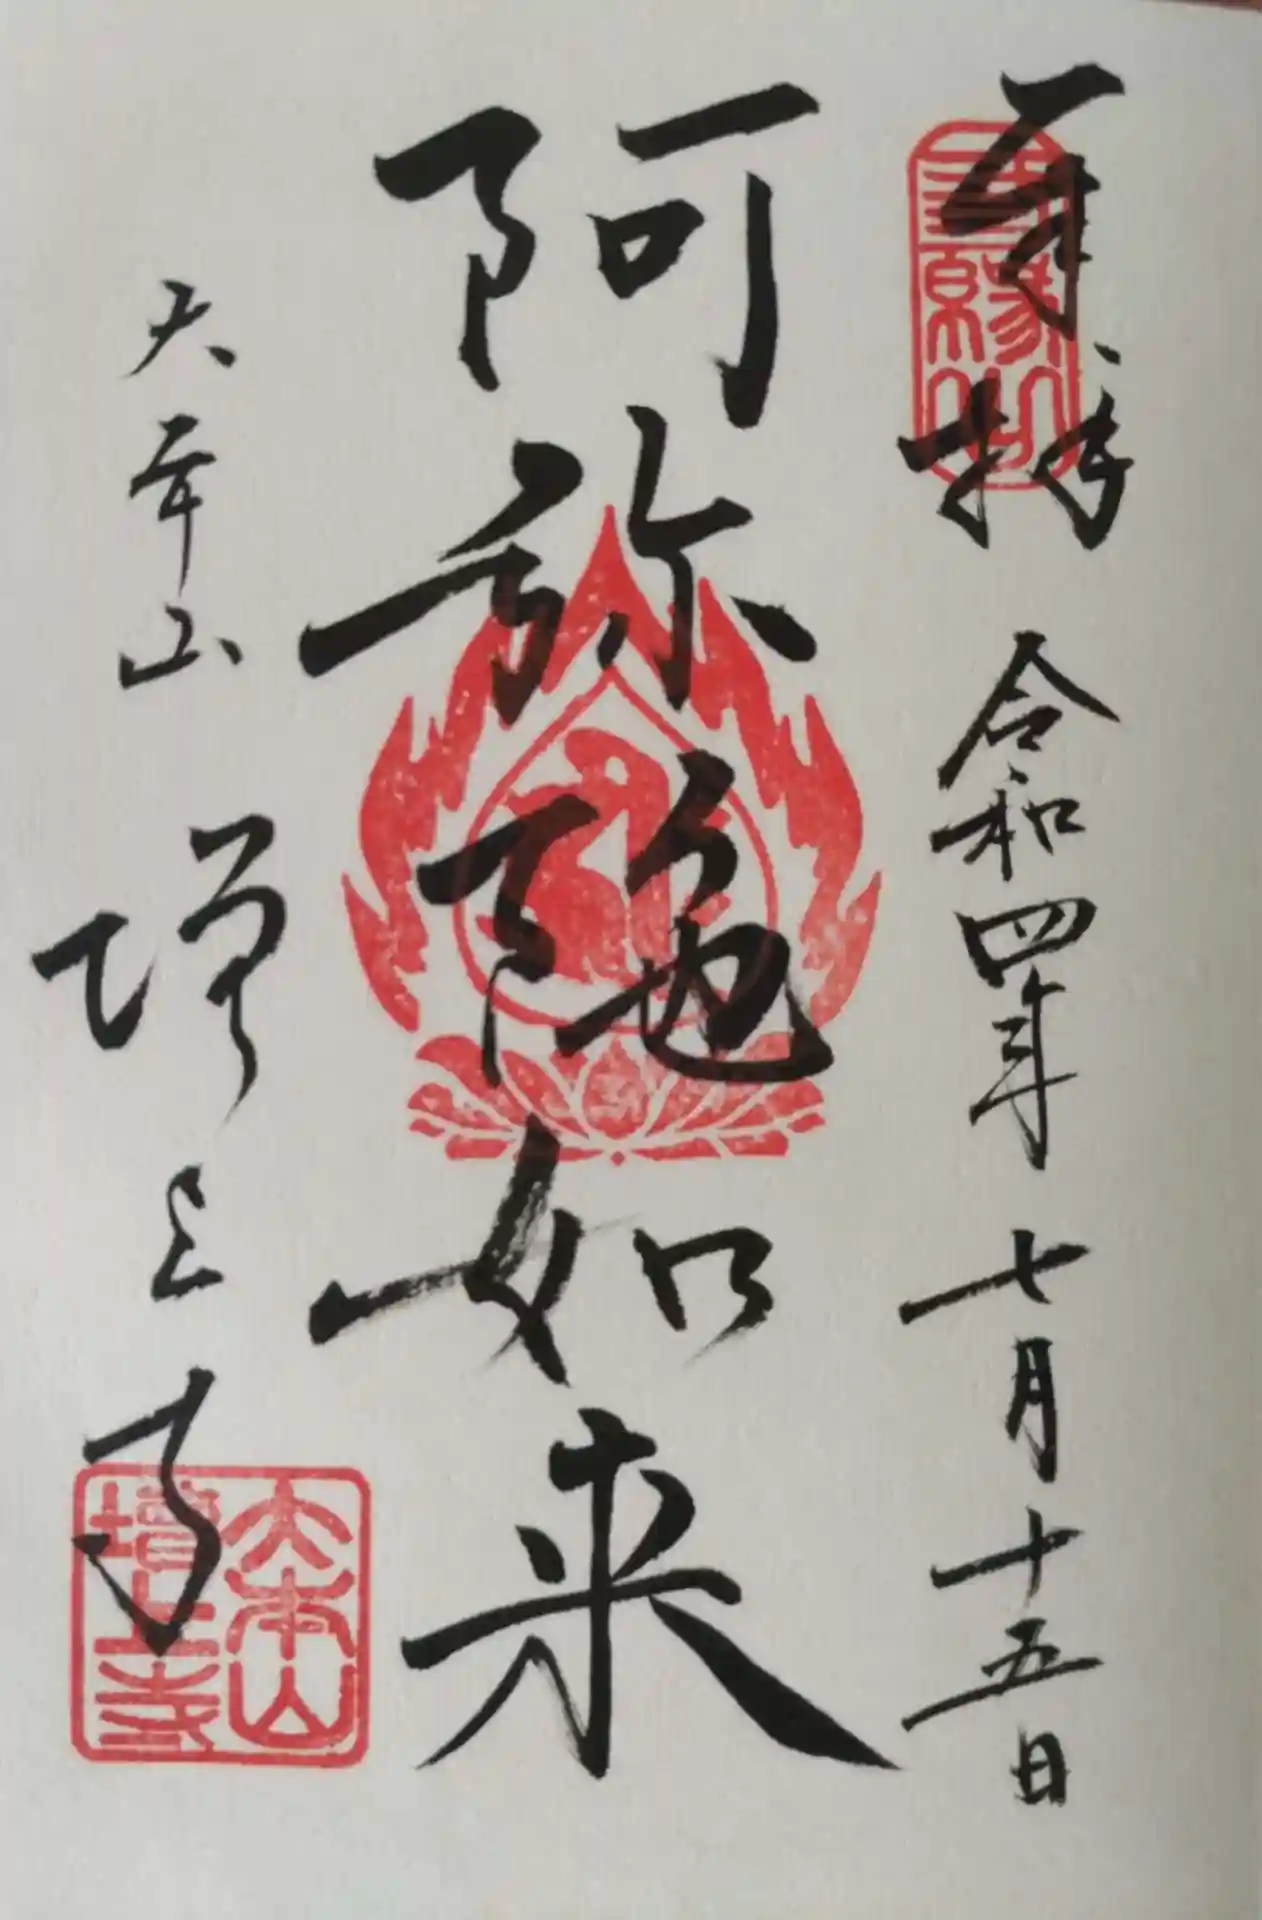 奉拝 令和四年 七月十五日
三縁山
阿弥陀如来
大本山 増上寺
大本山
増上寺